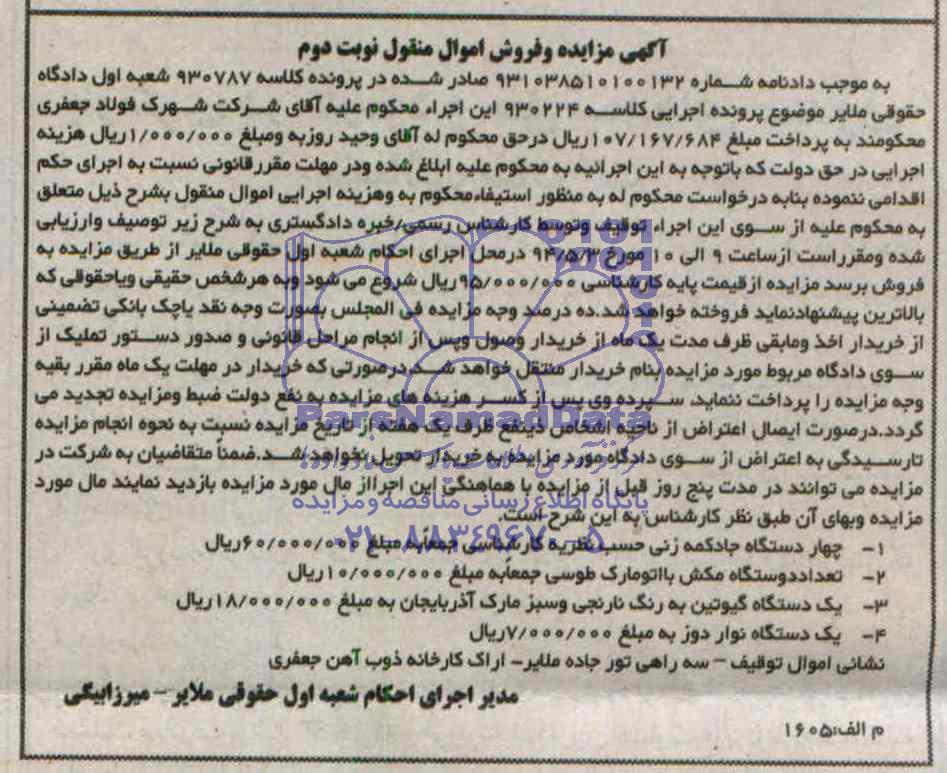 آگهی مزایده وفروش اموال منقول نوبت دوم
به موجب دادنامه شماره ۹۳۱۰۳۸۵۱۰۱۰۰۱۳۲ صادر شده در پرونده کلاسه ۹۳۰۷۸۷ شعبه اول دادگاه
حقوقی ملایر موضوع پرونده اجرایی کلاسه ۹۳۰۲۲۴ این اجراء محکوم علیه آقای شرکت شهرک فولاد جعفری
محکومند به پرداخت مبلغ ۱۰۷/۱۶۷/۶۸۴ریال درحق محکوم له آقای وحید روزبه ومبلغ ۱/۰۰۰/۰۰۰ریال هزینه
اجرایی در حق دولت که باتوجه به این اجرائیه به محکوم علیه ابلاغ شده ودر مهلت مقررقانونی نسبت به اجرای حکم
اقدامی ننموده بنابه درخواست محکوم له به منظور استیفاءمحکوم به وهزینه اجرایی اموال منقول بشرح ذیل متعلق
به محکوم علیه از سوی این اجراء توقیف وتوسط کارشناس رسمی/خبره دادگستری به شرح زیر توصیف وارزیابی
شده ومقرراست ازساعت ۹ الی ۱۰ مورخ ۹۴/۵/۳ درمحل اجرای احکام شعبه اول حقوقی ملایر از طریق مزایده به
فروش برسد مزایده ازقیمت پایه کارشناسی ۹۵/۰۰۰/۰۰۰ریال شروع می شود وبه هرشخص حقیقی ویاحقوقی که
بالاترین پیشنهادنماید فروخته خواهد شد.ده درصد وجه مزایده فی المجلس بصورت وجه نقد یاچک بانکی تضمینی
از خریدار اخذ ومابقی ظرف مدت یک ماه از خریدار وصول وپس از انجام مراحل قانونی و صدور دستور تملیک از
سوی دادگاه مربوط مورد مزایده بنام خریدار منتقل خواهد شد.درصورتی که خریدار در مهلت یک ماه مقرر بقیه
وجه مزایده را پرداخت ننماید، سپرده وی پس از کسر هزینه های مزایده به نفع دولت ضبط ومزایده تجدید می
گردد.درصورت ایصال اعتراض از ناحیه اشخاص ذینفع ظرف یک هفته از تاریخ مزایده نسبت به نحوه انجام مزایده
تارسیدگی به اعتراض از سوی دادگاه مورد مزایده به خریدار تحویل نخواهد شد.ضمناً متقاضیان به شرکت در
مزایده می توانند در مدت پنج روز قبل از مزایده با هماهنگی این اجرااز مال مورد مزایده بازدید نمایند مال مورد
مزایده وبهای آن طبق نظر کارشناس به این شرح است.
۱- چهار دستگاه جادکمه زنی حسب نظریه کارشناسی جمعاًبه مبلغ ۶۰/۰۰۰/۰۰۰ریال
۲- تعداددوستگاه مکش بااتومارک طوسی جمعاًبه مبلغ ۱۰/۰۰۰/۰۰۰ریال
۳- یک دستگاه گیوتین به رنگ نارنجی وسبز مارک آذربایجان به مبلغ ۱۸/۰۰۰/۰۰۰ریال
۴- یک دستگاه نوار دوز به مبلغ ۷/۰۰۰/۰۰۰ریال
نشانی اموال توقیف – سه راهی تور جاده ملایر- اراک کارخانه ذوب آهن جعفری
مدیر اجرای احکام شعبه اول حقوقی ملایر – میرزابیگی
م الف:۱۶۰۵
ParsNamadData
پایگاه اطلاع رسانی مناقصه و مزایده
۰۲۱-۸۸۳۴۹۶۷۰-۵